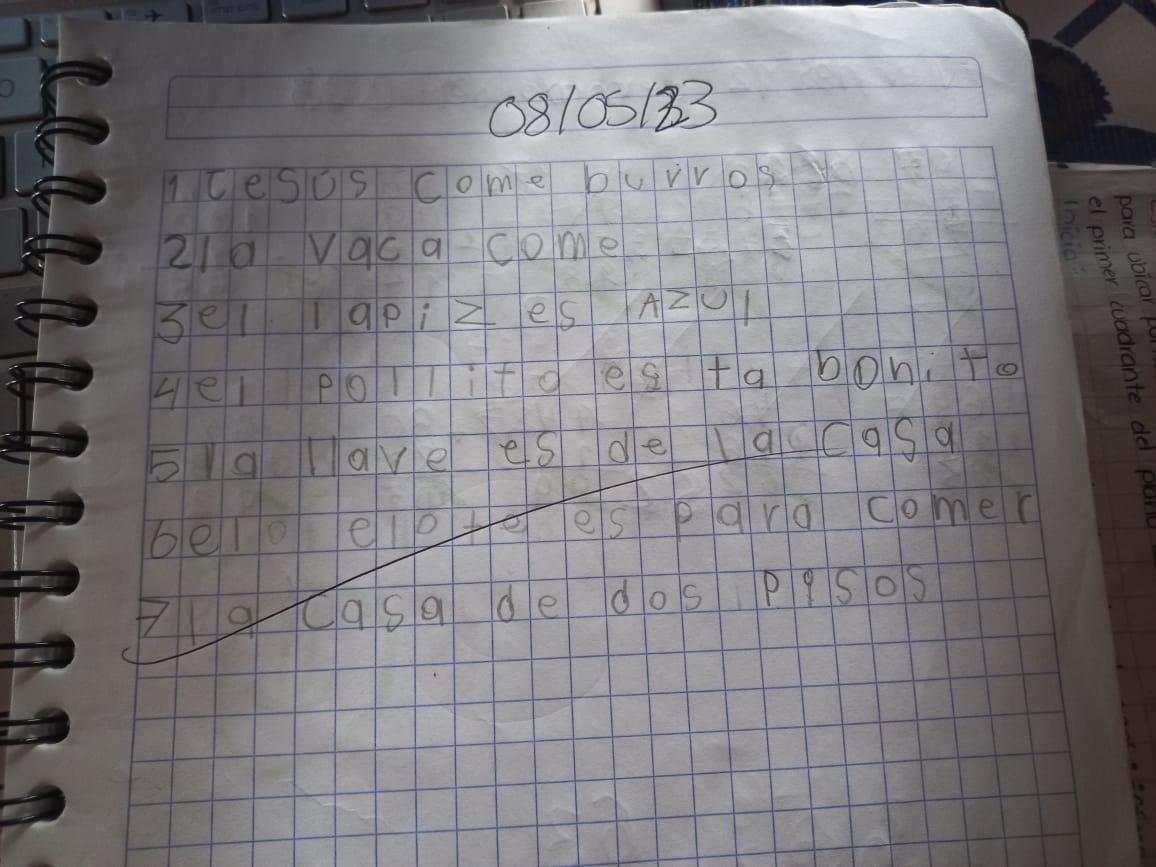 08/05/23
1. Jesús come burros
2 la vaca come
3 el lapiz es AZUl
4 el pollito es ta bonito
5 la llave es de la casa
6 elo elote es para comer
7 la casa de dos pisos
para ubicar
el primer cuadrante del plano
Inicia: